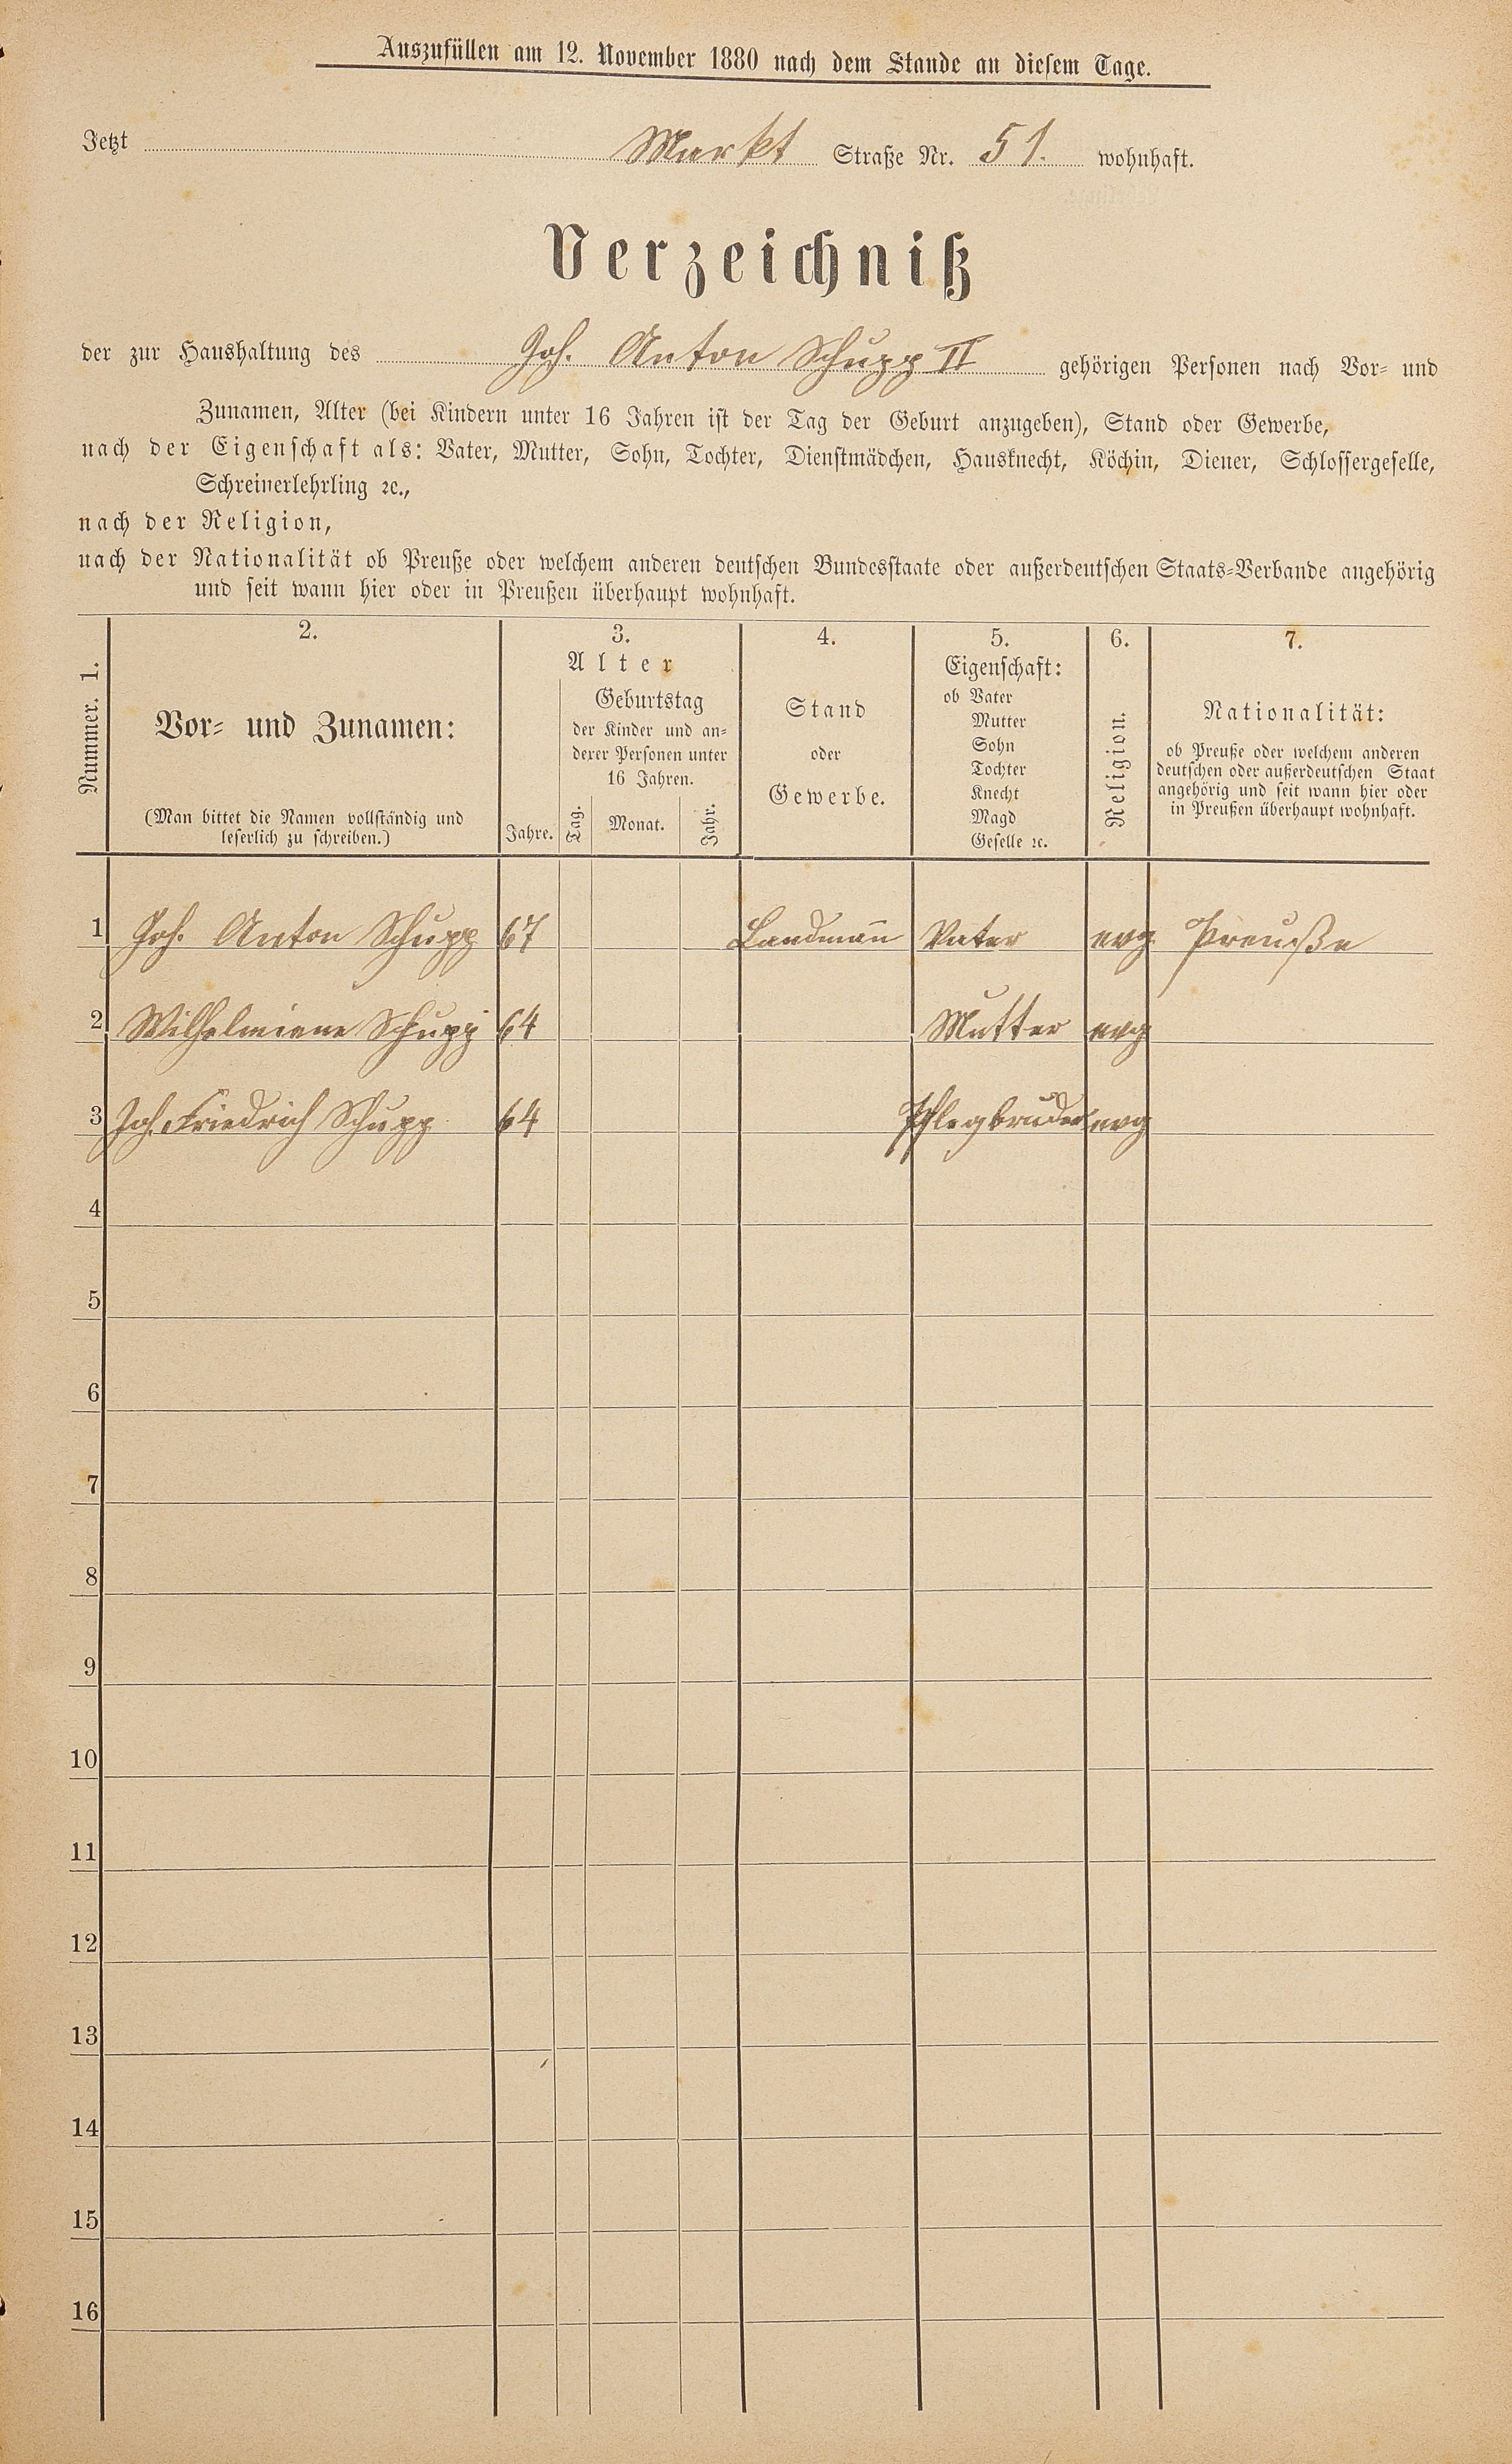 Auszufüllen am 12. November 1880 nach dem Stande an diesem Tage.
Jetzt Markt Straße Nr. 51. wohnhaft.
Verzeichniß
der zur Haushaltung des Joh. Anton Schupp II gehörigen Personen nach Vor- und
Zunamen, Alter (bei Kindern unter 16 Jahren ist der Tag der Geburt anzugeben), Stand oder Gewerbe,
nach der Eigenschaft als: Vater, Mutter, Sohn, Tochter, Dienstmädchen, Hausknecht, Köchin, Diener, Schlossergeselle,
Schreinerlehrling ꝛc.,
nach der Religion,
nach der Nationalität ob Preuße oder welchem anderen deutschen Bundesstaate oder außerdeutschen Staats-Verbande angehörig
und seit wann hier oder in Preußen überhaupt wohnhaft.
Nummer. 1.
2.
Vor- und Zunamen:
(Man bittet die Namen vollständig und
leserlich zu schreiben.)
3.
Alter
Jahre.
Geburtstag
der Kinder und an-
derer Personen unter
16 Jahren.
Tag. Monat. Jahr.
4.
Stand
oder
Gewerbe.
5.
Eigenschaft:
ob Vater
Mutter
Sohn
Tochter
Knecht
Magd
Geselle ꝛc.
6.
Religion.
7.
Nationalität:
ob Preuße oder welchem anderen
deutschen oder außerdeutschen Staat
angehörig und seit wann hier oder
in Preußen überhaupt wohnhaft.
1 Joh. Anton Schupp 67 Landmañ Vater evg. Preuße
2 Wilhelmiene Schupp 64 Mutter evg
3 Joh. Friedrich Schupp 64 Pflegbruder evg
4
5
6
7
8
9
10
11
12
13
14
15
16